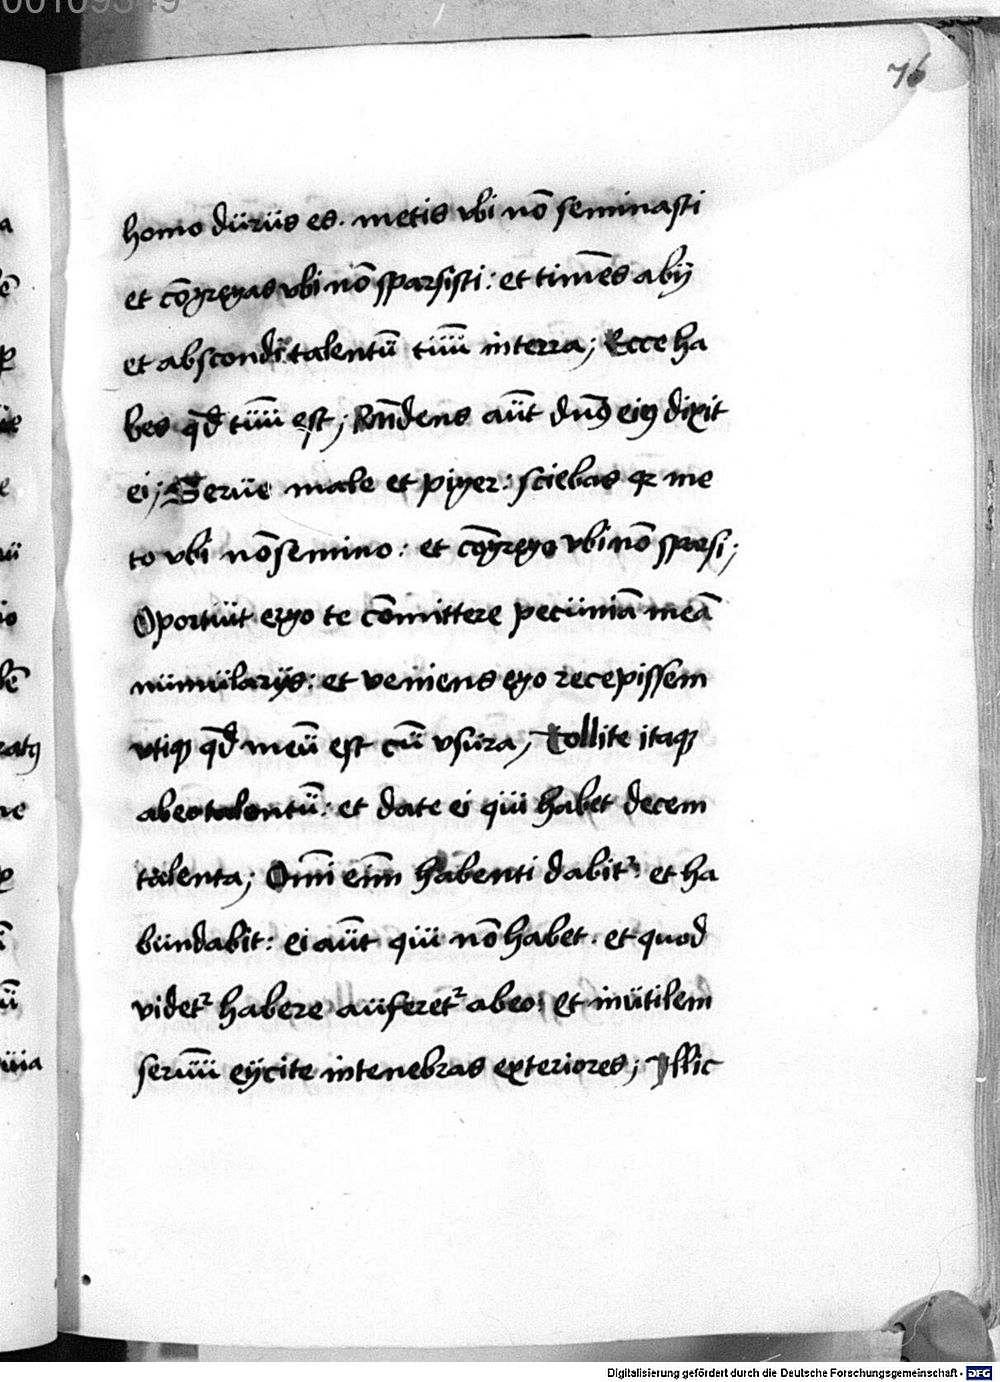 76
homo dürüs es. metis vbi nō seminasti
et cōgregas vbi nō sparsisti: et timēs abij
et abscondi talentū tüū in terra; Ecce ha
bes qđ tüū est; Rn̄dens aūt dn̄s eiꝰ dixit
ei; Serüe male et piger: sciebas qꝛ me
to vbi nō semino: et cōgrego vbi nō sparsi;
Oportüit ergo te cōmittere pecüniā meā
nümülarijs: et veniens ego recepissem
vtiqꝫ qđ meū est cū vsüra, Tollite itaqꝫ
ab eo talentū: et date ei qüi habet decem
talenta; Om̄i eim̄ habenti dabitᷣ: et ha
bündabit: ei aūt qüi nō habet. et quod
videtᷣ habere aüferetᷣ ab eo: Et inütilem
serüū eycite in tenebras exteriores; Illic
Digitalisierung gefördert durch die Deutsche Forschungsgemeinschaft - DFG